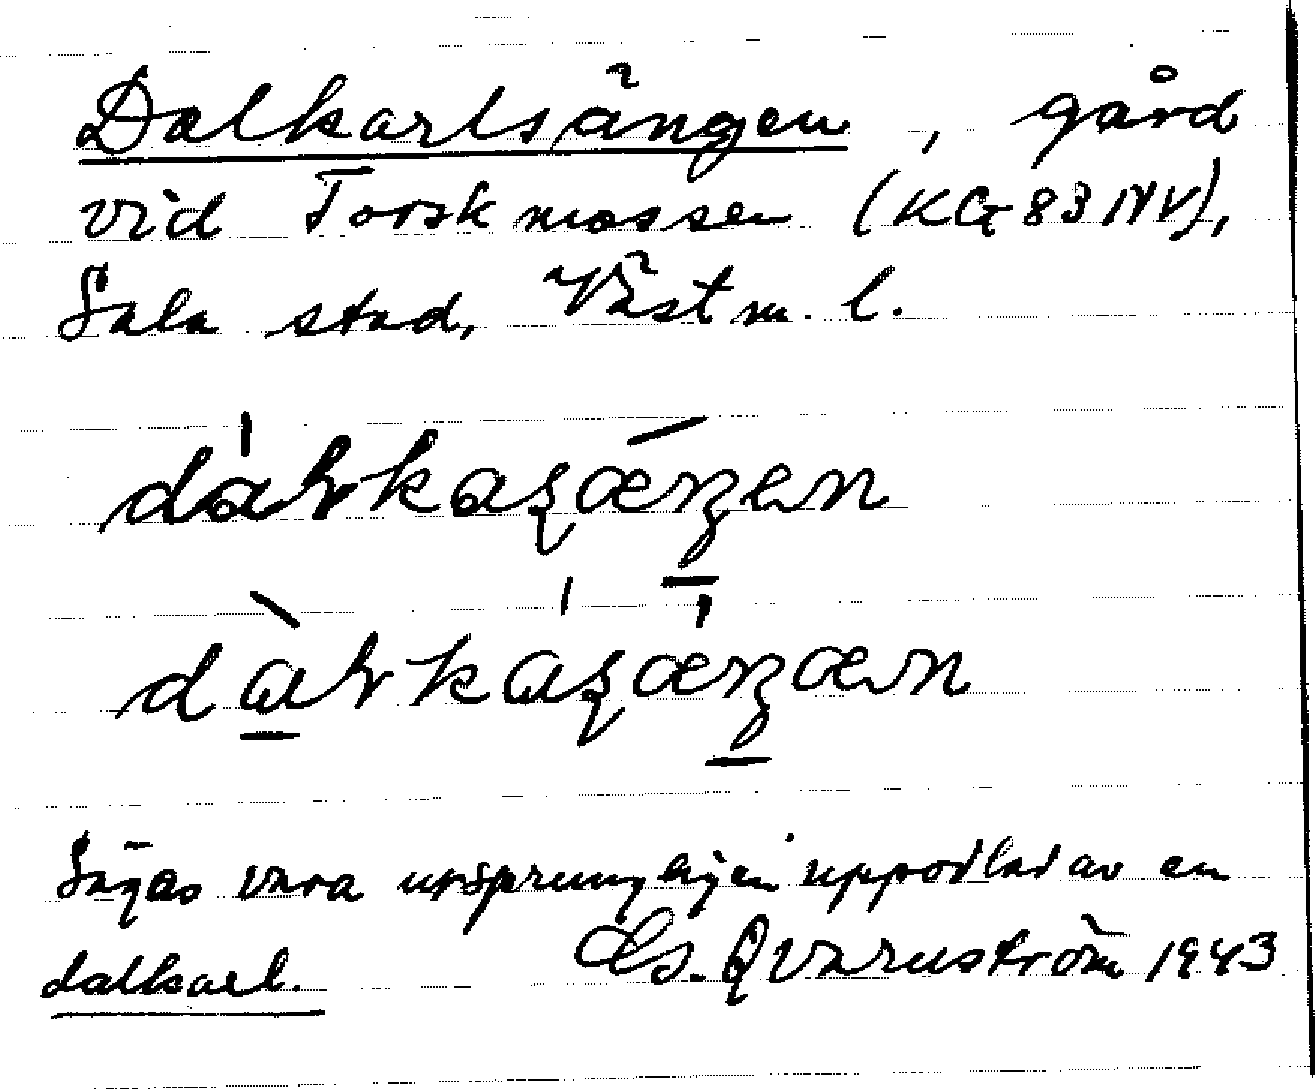 Dalkarlsängen, gård
vid Torskmossen (KG 83 NV),
Sala stad, Västm. l.
Sägas vara ursprungligen uppodlad av en
dalkarl. Qvarnström 1943